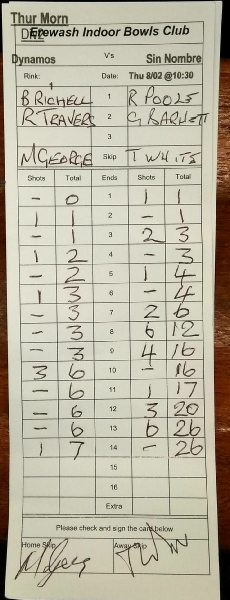 Thur Morn
Erewash Indoor Bowls Club
Dynamos V's Sin Nombre
Rink: 1 Date: Thu 8/02 @10:30
B RICHELL 1 R POOLE
R TRAVERS 2 G BARNETT
3
M GEORGE Skip T WHITE
Shots Total Ends Shots Total
- 0 1 1 1
1 1 2 - 1
- 1 3 2 3
1 2 4 - 3
- 2 5 1 4
1 3 6 - 4
- 3 7 2 6
- 3 8 6 12
- 3 9 4 16
3 6 10 - 16
- 6 11 1 17
- 6 12 3 20
- 6 13 6 26
1 7 14 - 26
15
16
Extra
Please check and sign the card below
Home Skip Away Skip